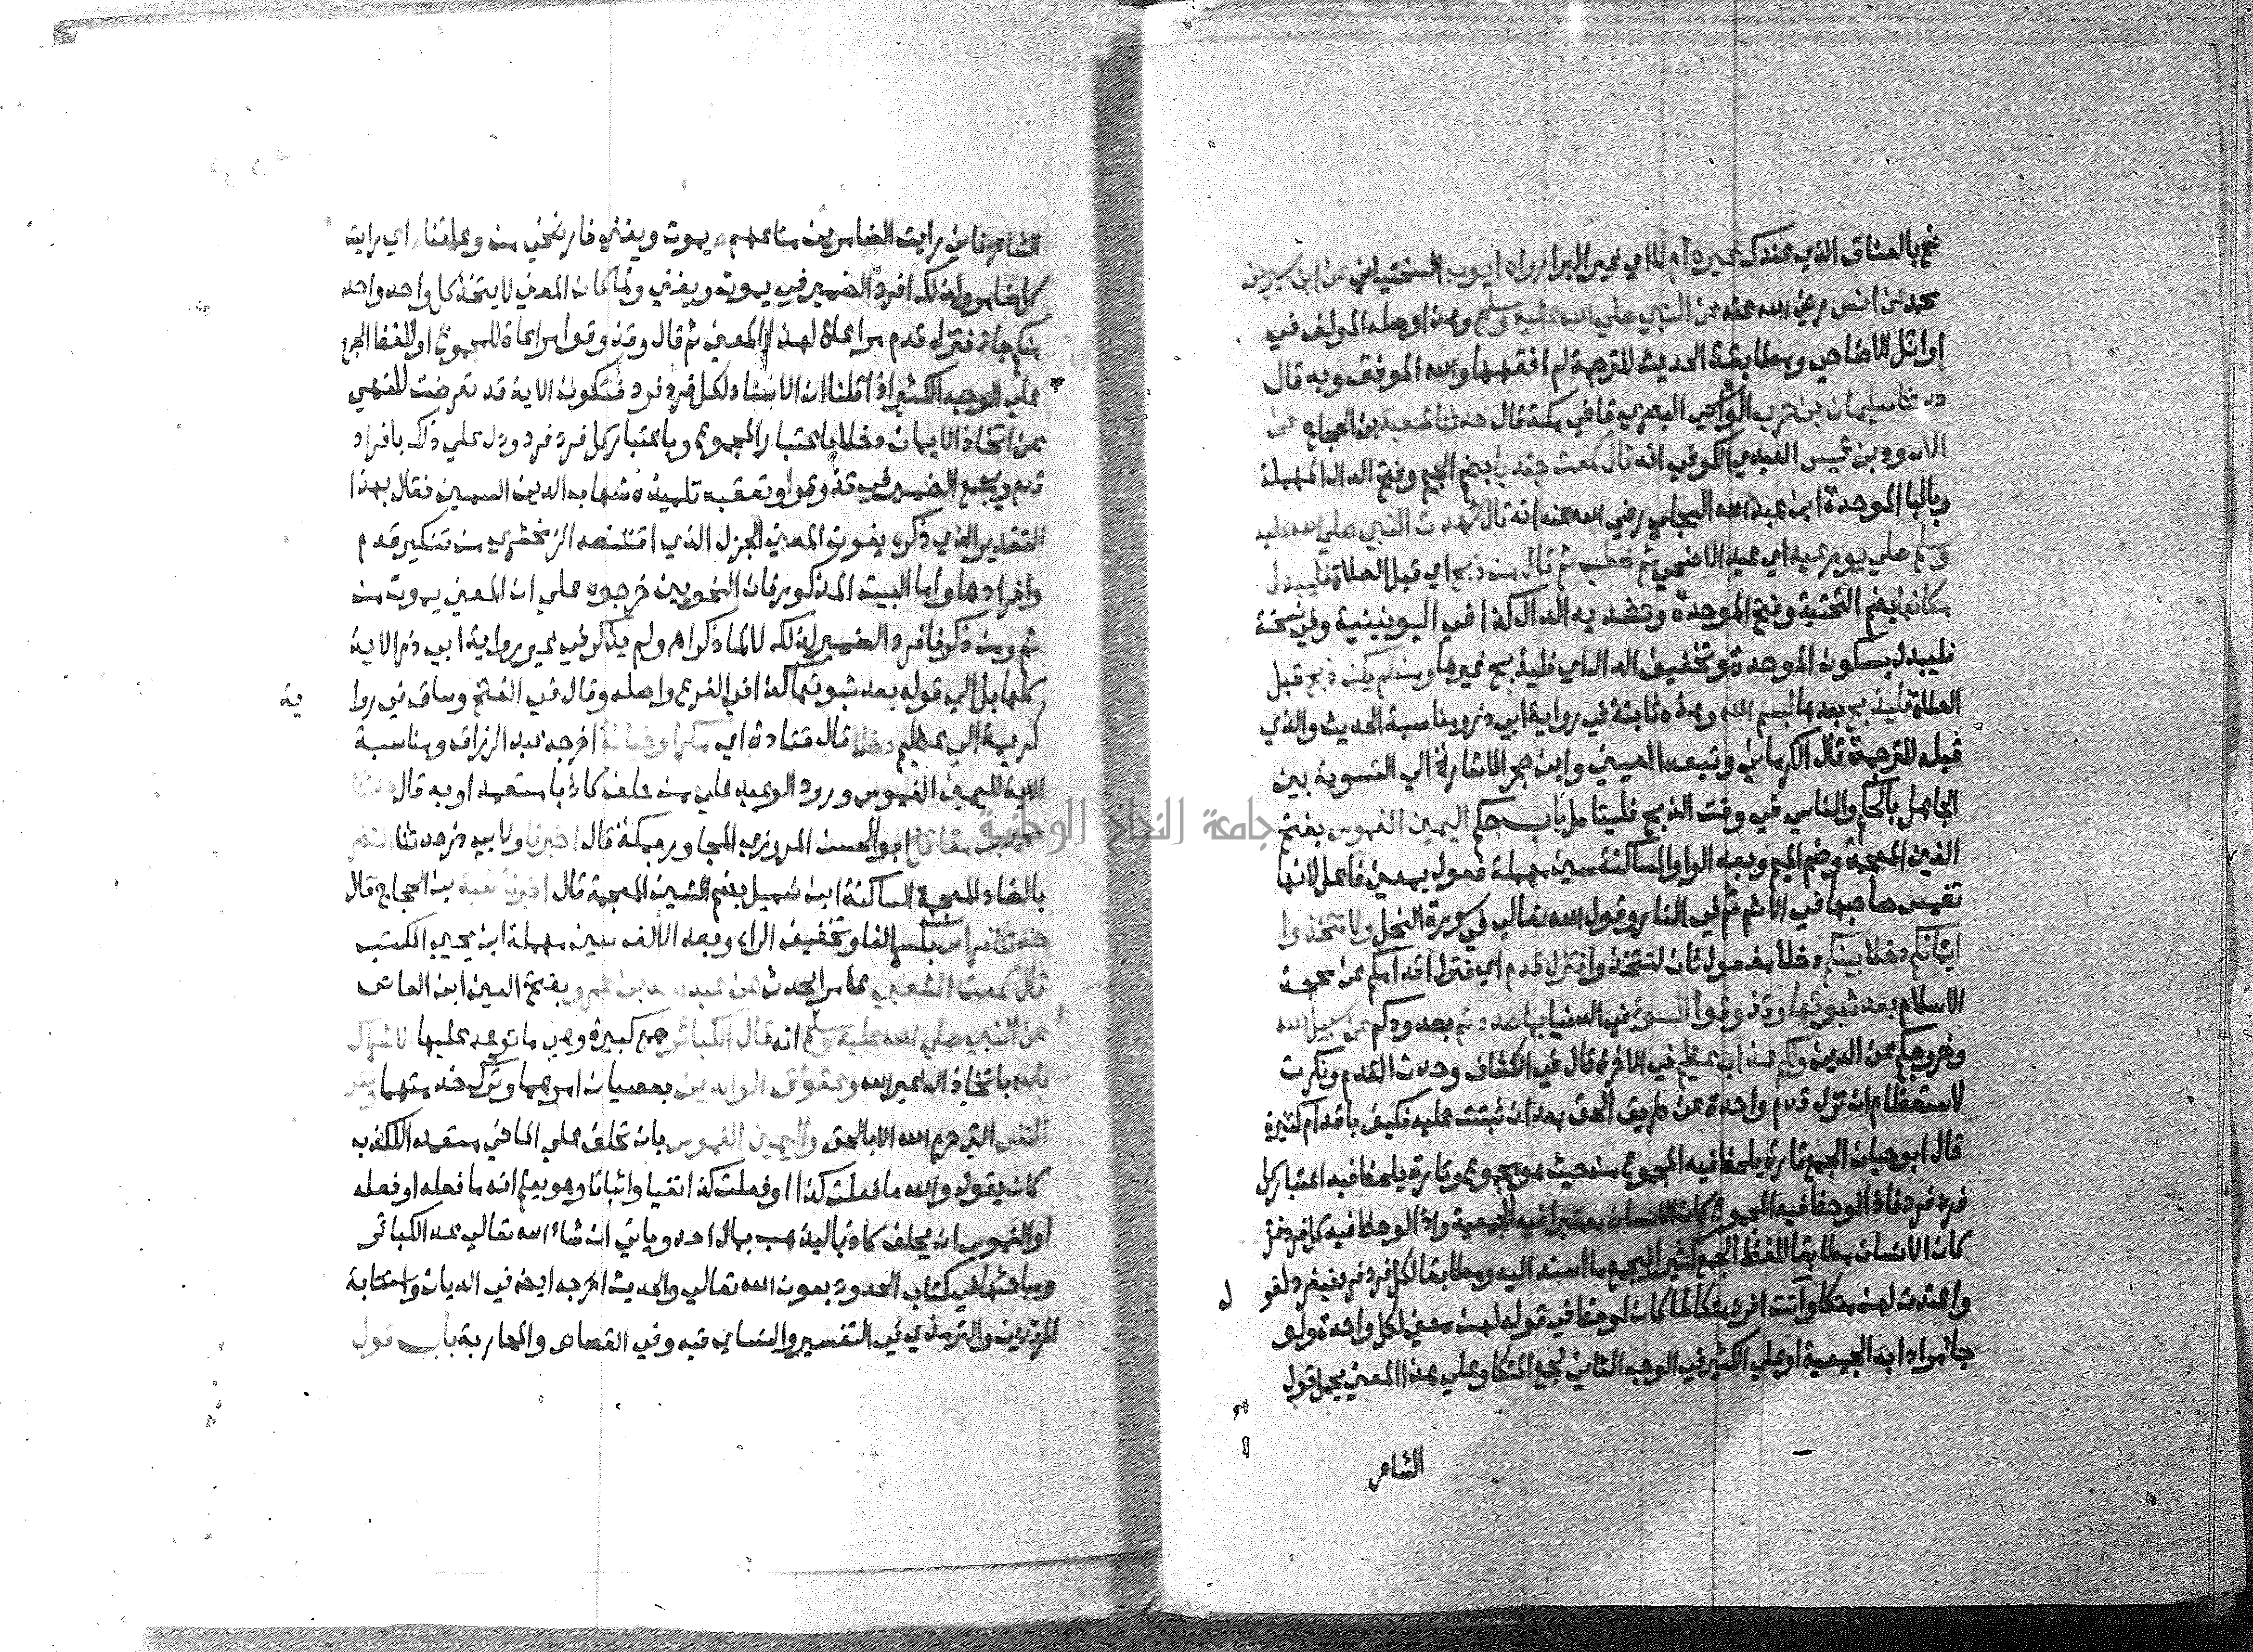 ضح بالعناق الذي عندك غيره ام لا اي غير البرا رواه ايوب السختياني عن ابن سيرين
محمد عن انس رضي الله عنه عن النبي صلي الله عليه وسلم وهذا وصله المولف في
اوائل الاضاحي ومطابقة الحديث للترجمة لم افقهها والله الموفق وبه قال
حدثنا سليمان بن حرب الواشحي البصري قاضي مكة قال حدثنا شعبة بن الحجاج عن
الاسود بن قيس العبدي الكوفي انه قال سمعت جندبا بضم الجيم وفتح الدال المهملة
وبالبا الموحدة ابن عبد الله البجلي رضي الله عنه انه قال شهدت النبي صلي الله عليه
وسلم صلي يوم عيد اي عيد الاضحي ثم خطب ثم قال من ذبح اي قبل الصلاة فليبدل
مكانها بضم التحتية وفتح الموحدة وتشديد الدال كذا في اليونينية وفي نسخة
فليبدل بسكون الموحدة وتخفيف الدال اي فليذبح غيرها ومن لم يكن ذبح قبل
الصلاة فليذبح بعدها بسم الله وهذه ثابتة في رواية ابي ذر ومناسبة الحديث والذي
قبله للترجمة قال الكرماني وتبعه العيني وابن حجر الاشارة الي التسوية بين
الجاهل بالحكم والناسي في وقت الذبح فليتامل باب حكم اليمين الغموس بفتح
الغين المعجمة وضم الميم وبعد الواو الساكنة سين مهملة فعول بمعني فاعل لانها
تغمس صاحبها في الاثم ثم في النار وقول الله تعالي في سورة النحل ولا تتخذوا
ايمانكم دخلا بينكم دخلا مفعول ثان لتتخذوا فتزل قدم اي فتزل اقدامكم عن محجة
الاسلام بعد ثبوتها وتذوقوا السوء في الدنيا بما صددتم بصدودكم عن سبيل الله
وخروجكم عن الدين ولكم عذاب عظيم في الاخرة قال في الكشاف وحدت القدم ونكرت
لاستعظام ان تزل قدم واحدة عن طريق الحق بعد ان ثبتت عليه فكيف باقدام كثيرة
قال ابو حيان الجمع تارة يلحظ فيه المجموع من حيث هو مجموع وتارة يلحظ فيه اعتبار كل
فرد فرد فاذا لوحظ فيه المجموع كان الاسناد معتبرا فيه الجمعية واذا لوحظ فيه كل فرد فرد
كان الاسناد مطابقا للفظ الجمع كثيرا فيجمع ما اسند اليه ومطابقا لكل فرد فرد فيفرد لقو ل
واعتدت لهن متكا وآتت افرد متكا لما كان لوحظ في قوله لهن معني لكل واحدة ولو
جا مرادا به الجمعية او علي الكثير في الوجه الثاني لجمع المتكا وعلي هذا المعني يحمل قول
الشاعر
الشاعر فاني رايت الضامرين متاعهم يموت ويفني فارضخي من وعائنا اي رايت
كل ضامر ولذلك افرد الضمير في يموت ويفني ولما كان المعني لا يتخذ كل واحد واحد
منكم جا فتزل قدم مراعاة لهذا المعني ثم قال وتذوقوا مراعاة للمجموع او للفظ الجمع
علي الوجه الكثير اذا قلنا ان الاسناد لكل فرد فرد فتكون الاية قد تعرضت للنهي
عن اتخاذ الايمان دخلا باعتبار المجموع وباعتبار كل فرد فرد ودل علي ذلك بافراد
قدم وبجمع الضمير في تذوقوا وتعقبه تلميذه شهاب الدين السمين فقال بهذا
التقدير الذي ذكره يفوت المعني الجزل الذي اقتنصه الزمخشري من تنكير قدم
وافرادها واما البيت المذكور فان النحويين خرجوه علي ان المعني يموت من
ثم ومن ذكر فافرد الضمير لذلك لا لما ذكر اه ولم يذكر في غير رواية ابي ذر الاية
كلها بل الي قوله بعد ثبوتها كذا في الفرع واصله وقال في الفتح وساق في روا ية
كريمة الي عظيم دخلا قال قتادة اي مكرا وخيانة اخرجه عبد الرزاق ومناسبة
الاية لليمين الغموس ورود الوعيد علي من حلف كاذبا متعمدا وبه قال حدثنا
محمد بن مقاتل ابو الحسن المروزي المجاور بمكة قال اخبرنا ولابي ذر حدثنا النضر
بالضاد المعجمة الساكنة ابن شميل بضم الشين المعجمة قال اخبرنا شعبة بن الحجاج قال
حدثنا فراس بكسر الفا وتخفيف الراء وبعد الالف سين مهملة ابن يحيي المكتب
قال سمعت الشعبي عامرا يحدث عن عبد الله بن عمرو بفتح العين ابن العاص
عن النبي صلي الله عليه وسلم انه قال الكبائر جمع كبيرة وهي ما توعد عليها الاشراك
بالله باتخاذ اله غير الله وعقوق الوالدين بعصيان امرهما وترك خدمتهما وقتل
النفس التي حرم الله الا بالحق واليمين الغموس بان تحلف علي الماضي متعمدا للكذب
كان يقول والله ما فعلت كذا او فعلت كذا نفيا واثباتا وهو يعلم انه ما فعله او فعله
او الغموس ان يحلف كاذبا ليذهب بمال احد وياتي ان شاء الله تعالي عدد الكبائر
ومباحثها في كتاب الحدود بعون الله تعالي والحديث اخرجه ايضا في الديات واستتابة
المرتدين والترمذي في التفسير والنساي فيه وفي القصاص والمحاربة باب قول
جامعة النجاح الوطنية